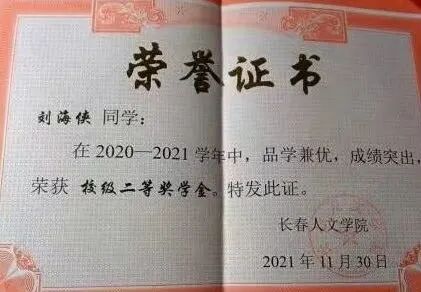 荣誉证书
刘海侠 同学：
在 2020—2021 学年中，品学兼优，成绩突出，
荣获 校级二等奖学金。特发此证。
长春人文学院
2021 年 11 月 30 日